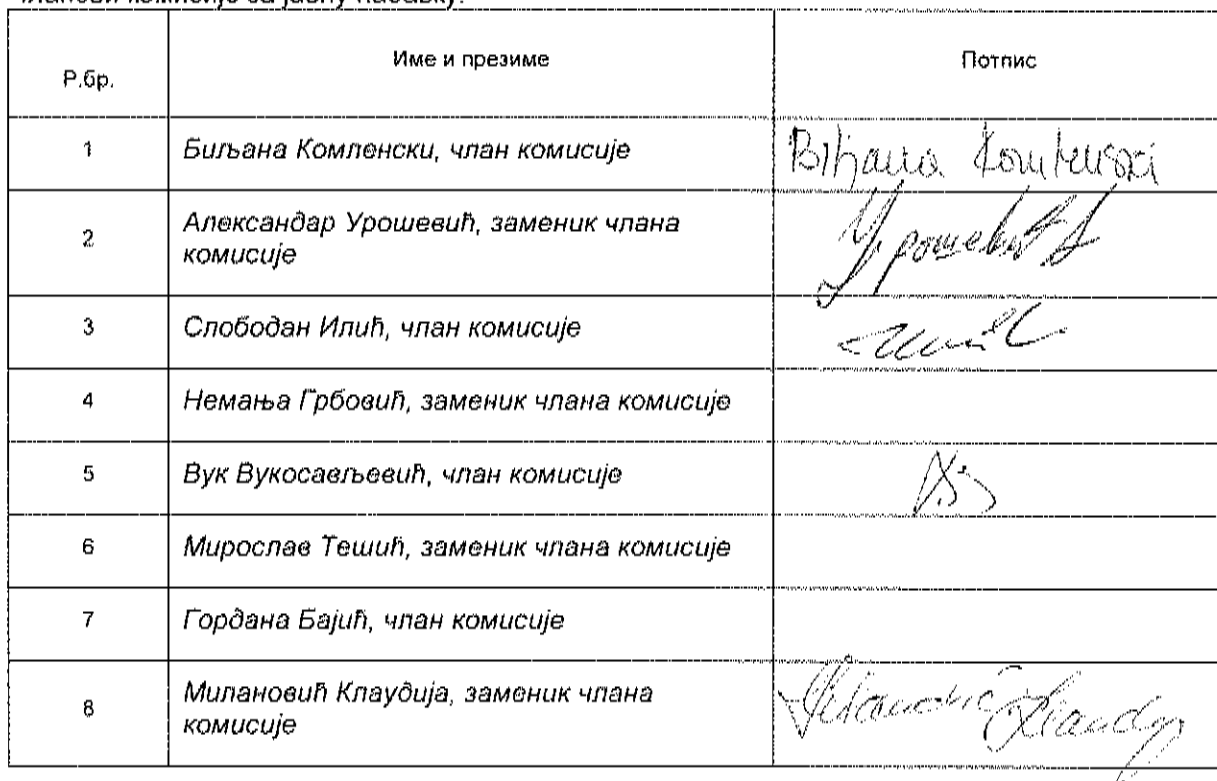 чланови комисије за јавну набавку:
Р.бр.
Име и презиме
Потпис
1
Биљана Комленски, члан комисије
2
Александар Урошевић, заменик члана
комисије
Урошевић А
3
Слободан Илић, члан комисије
4
Немања Грбовић, заменик члана комисије
5
Вук Вукосављевић, члан комисије
6
Мирослав Тешић, заменик члана комисије
7
Гордана Бајић, члан комисије
8
Милановић Клаудија, заменик члана
комисије